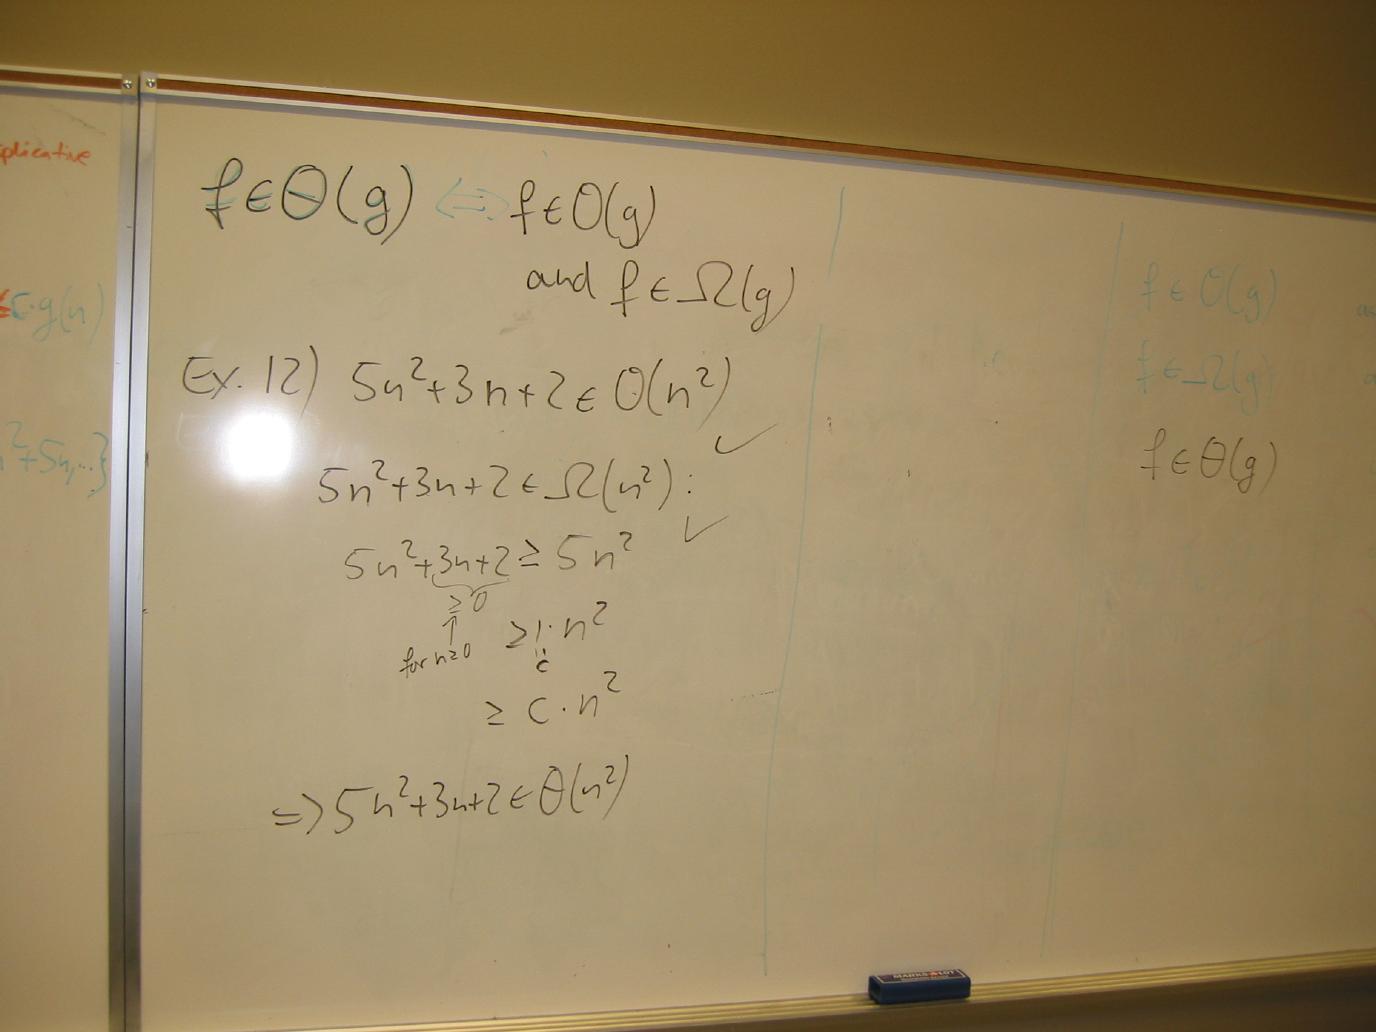 plicative
≤c·g(n)
n²+5n,...}
f∈Θ(g) ⇔ f∈O(g)
and f∈Ω(g)
Ex. 12) 5n²+3n+2 ∈ O(n²) ✓
5n²+3n+2 ∈ Ω(n²): ✓
5n²+3n+2 ≥ 5n²
≥0
for n≥0
≥ 1·n²
c
≥ c·n²
⇒ 5n²+3n+2 ∈ Θ(n²)
f ∈ O(g)
f ∈ Ω(g)
f ∈ Θ(g)
MARKS-A-LOT